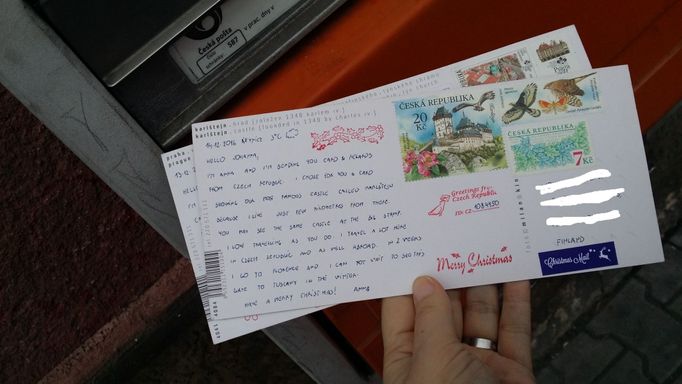 Česká pošta
číslo
schránky 587
v prac. dny v
karlštejn. hrad (založen 1348 karlem iv.)
karlštejn. castle (founded in 1348 by charles iv.)
14.12.2016 3°C
HELLO JOHANNA,
I'M ANNA AND I'M SENDING YOU CARD &
FROM CZECH REPUBLIC. I CHOSE FOR YOU A CARD
SHOWING OUR MOST FAMOUS CASTLE CALLED KARLŠTEJN
BECAUSE I LIVE JUST FEW KILOMETRES FROM THERE.
YOU MAY SEE THE SAME CASTLE AT THE BIG STAMP.
I LOVE TRAVELLING AS YOU DO, I TRAVEL A LOT HERE
IN CZECH REPUBLIC AND AS WELL ABROAD. IN 2 WEEKS
I GO TO FLORENCE AND I CAN NOT WAIT TO SEE THIS
GATE TO TUSCANY IN THE WINTER.
HAVE A MERRY CHRISTMAS! ANNA
ČESKÁ REPUBLIKA
20
Kč
ČESKÁ REPUBLIKA
7 Kč
Greetings from
Czech Republic
Merry Christmas
FINLAND
Christmas Mail
praha
prague
HELLO